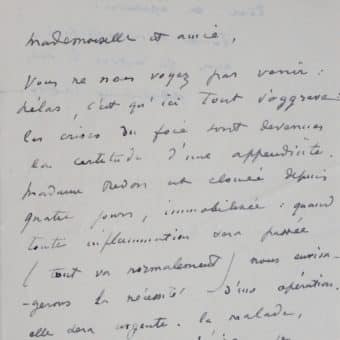 Mademoiselle et amie,
Vous ne nous voyez pas venir :
hélas, c'est qu'ici tout s'aggrave :
les crises du foie sont devenues
la certitude d'une appendicite.
Madame Redon est clouée depuis
quatre jours, immobilisée : quand
toute inflammation sera passée
(tout va normalement) nous envisa-
-gerons la nécessité d'une opération.
elle sera urgente. la malade,